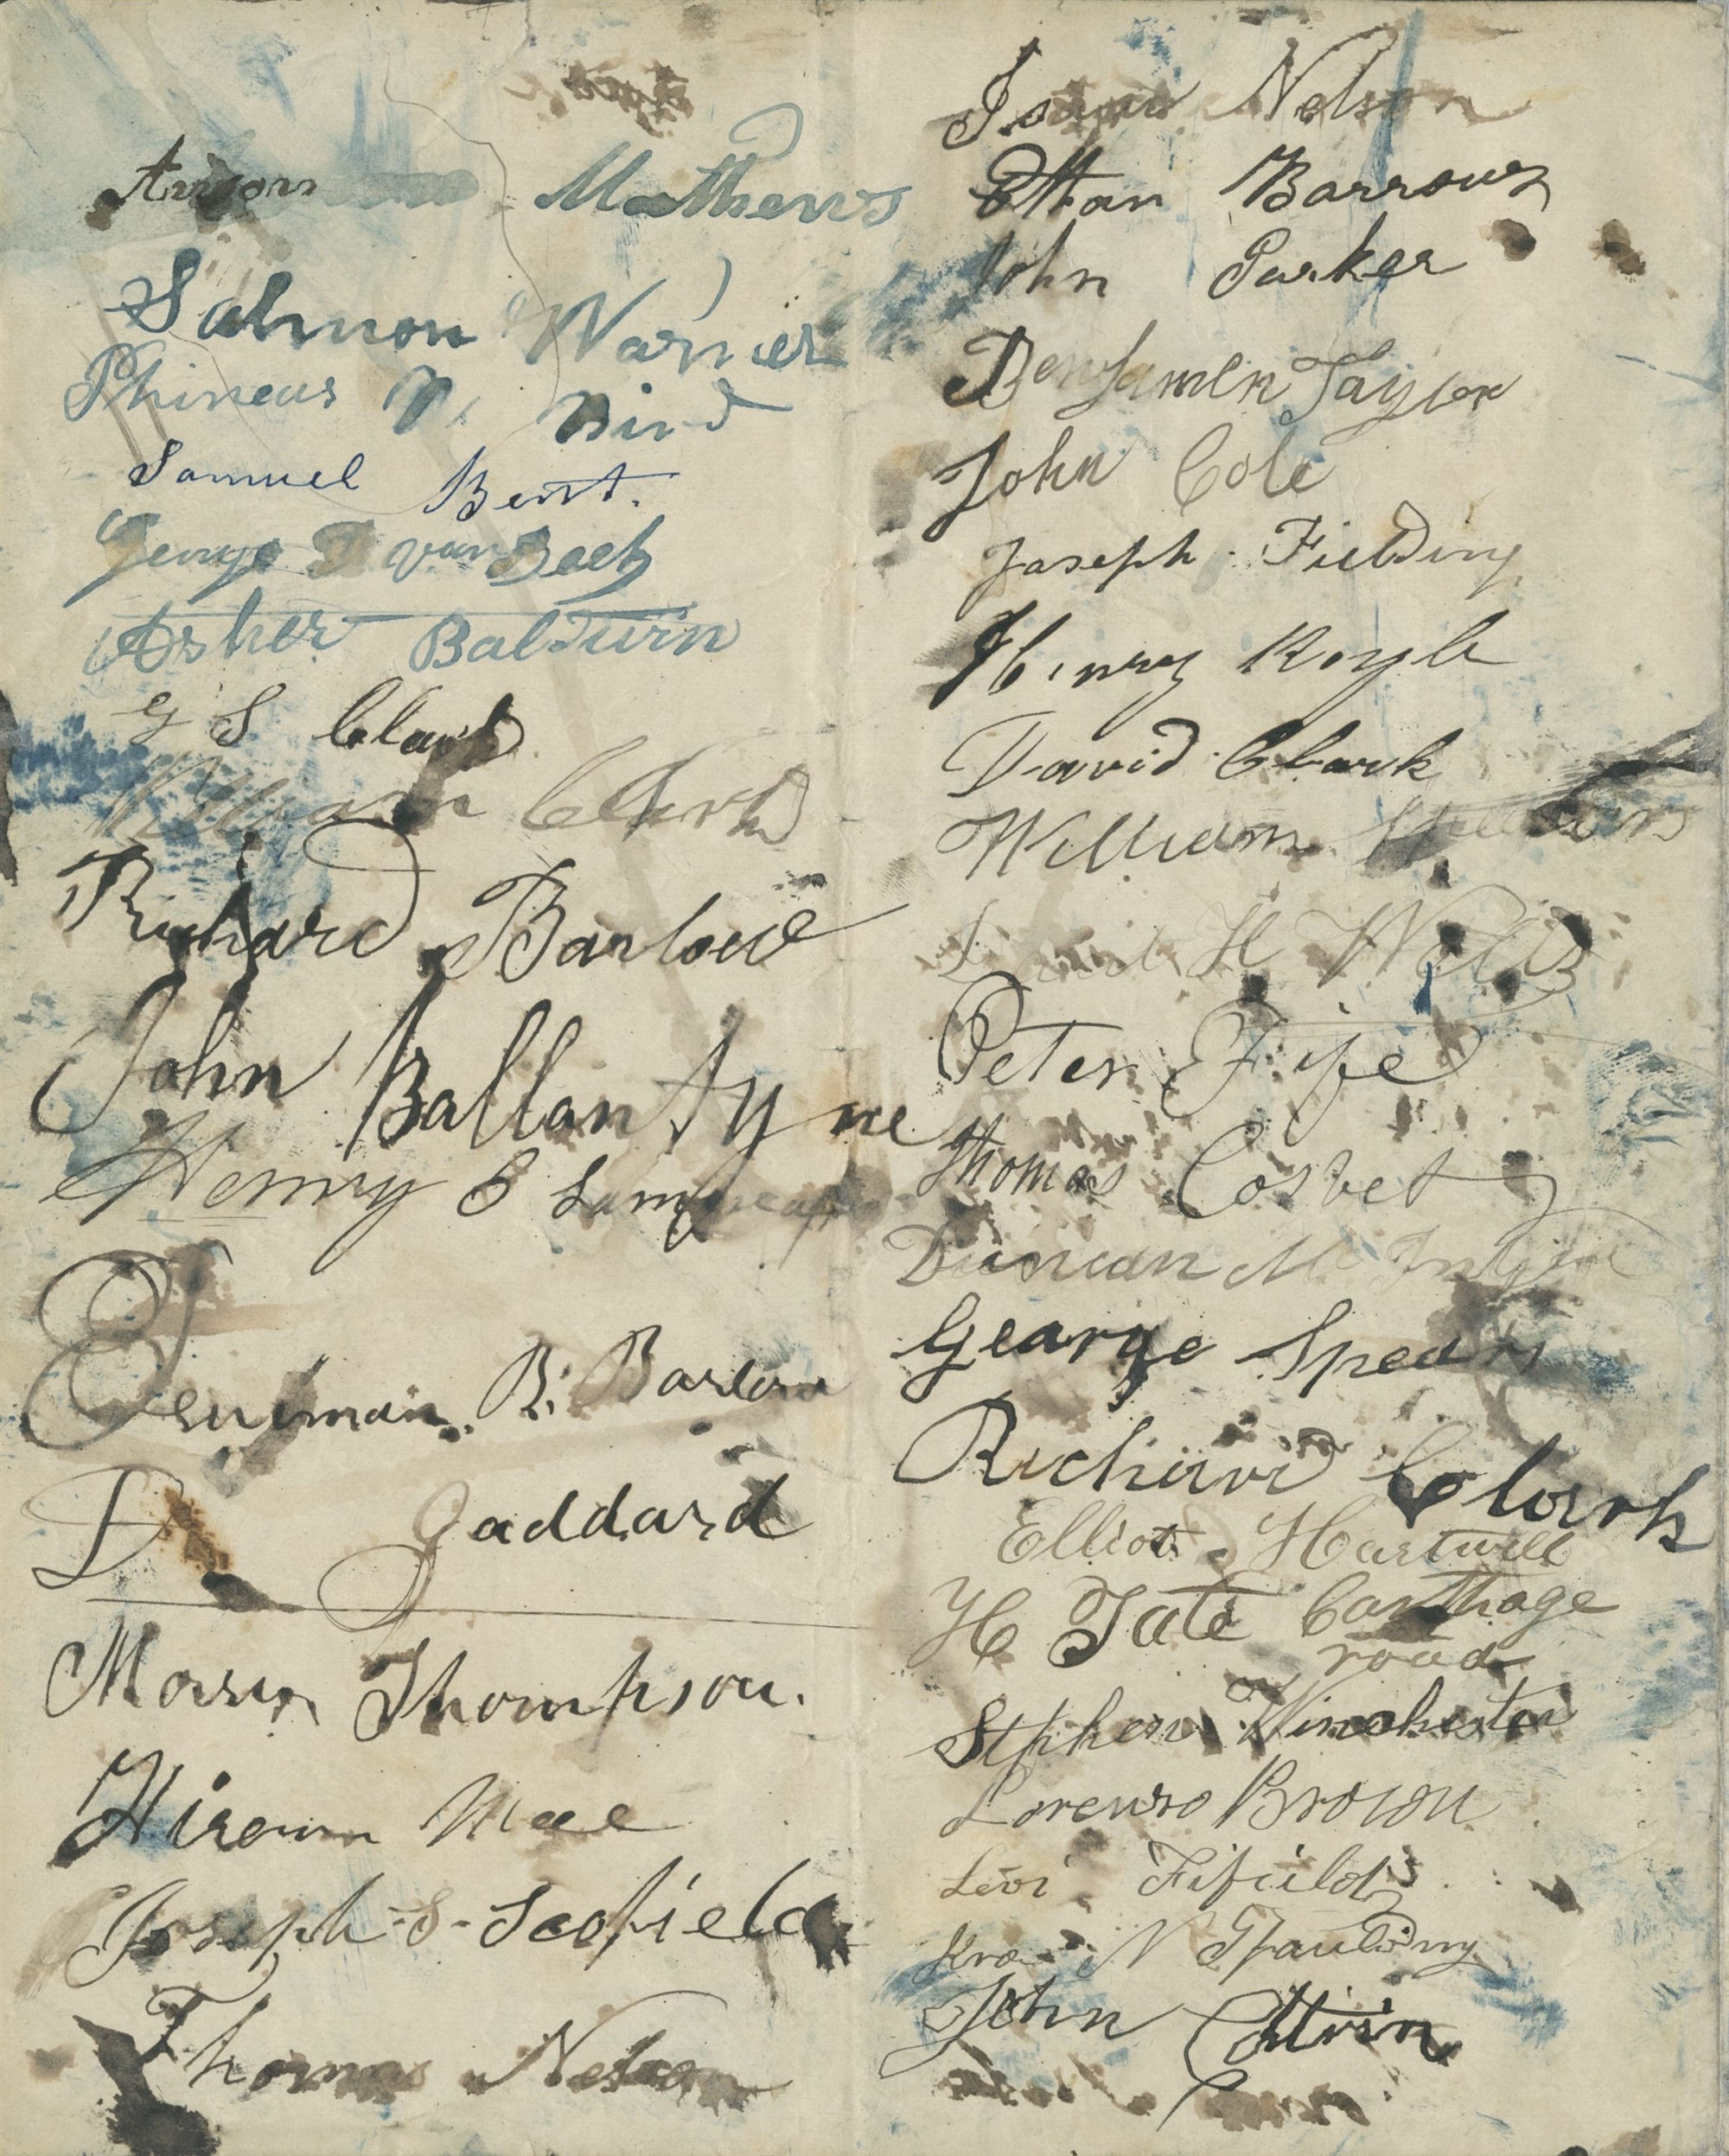 Anson Mathews
Salmon Warner
Phineas Bird
Samuel Bent.
George D van Beek
Asher Baldwin
G S Clark
William Clark
Richard Barlow
John Ballantyne
Henry
B. Barlow
D Goddard
Thompson.
Hiram Mace
Joseph S. Scofield
Thomas Nelson
Isaac Nelson
Ethan Barrows
John Parker
Benjamin Taylor
John Cole
Joseph Fielding
Henry Royle
David Clark
William
H Wells
Peter Fife
Thomas
Duncan Mc Intyre
George Spears
Richard Clark
Elliot Hartwell
H Tate Carthage
road
Stephen Winchester
Lorenzo Brown
Levi Fifield
N Spaulding
John